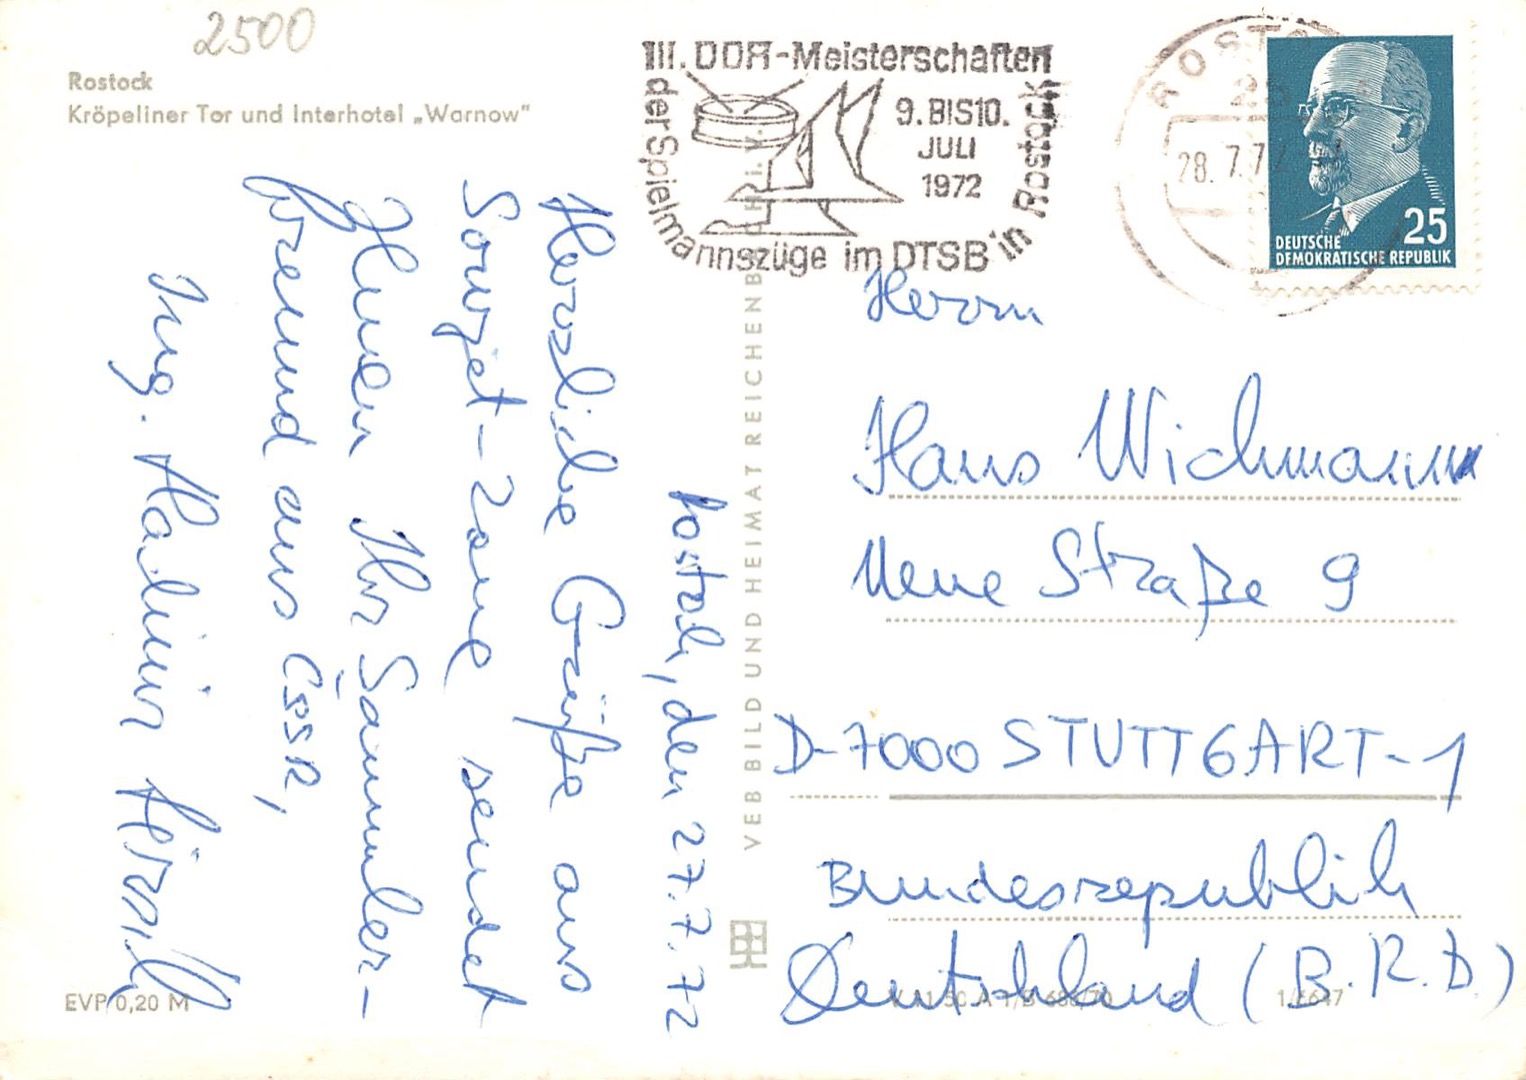 2500
Rostock
Kröpeliner Tor und Interhotel „Warnow"
III. DDR-Meisterschaften
der Spielmannszüge im DTSB in Rostock
9. BIS 10.
JULI
1972
ROSTOCK
25
28.7.72
25
DEUTSCHE
DEMOKRATISCHE REPUBLIK
Rostock, den 27.7.72
Herzliche Grüße aus
Sowjet-Zone sendet
Ihnen Ihr Sammler-
freund aus ČSSR,
Ing.
VEB BILD UND HEIMAT REICHENBACH i. V.
Herrn
Hans Wichmann
Neue Straße 9
D-7000 STUTTGART-1
Bundesrepublik
Deutschland (B.R.D.)
EVP 0,20 M